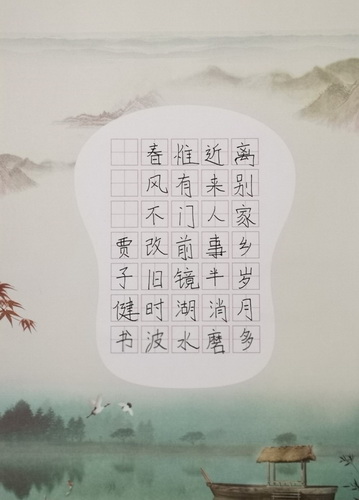 离别家乡岁月多
近来人事半消磨
惟有门前镜湖水
春风不改旧时波
贾子健书